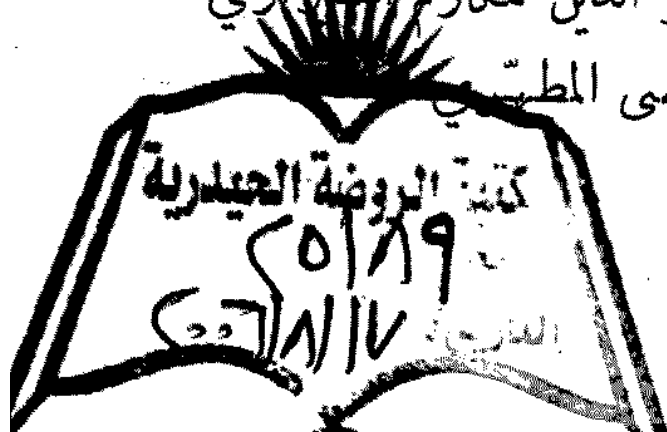 المطهّري
مكتبة الروضة الحيدرية
٢٥١٨٩
التاريخ: ٢٠٠٦/٨/١٧